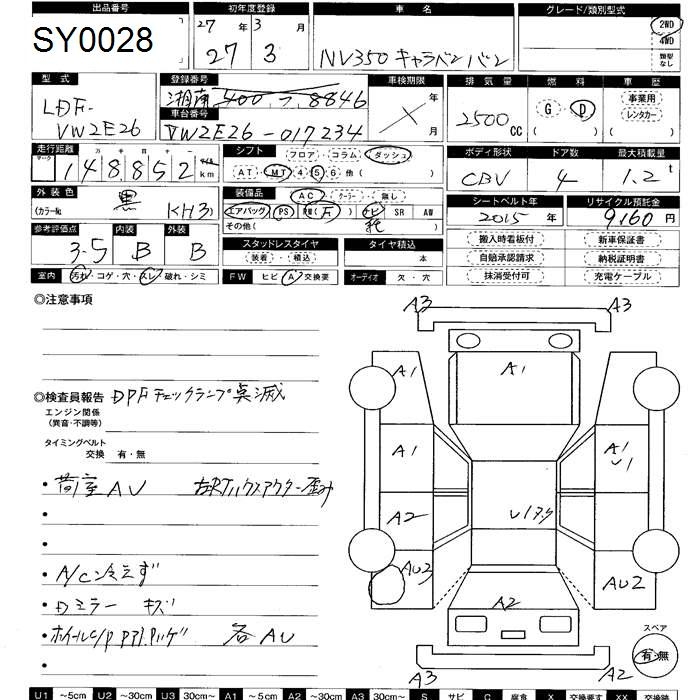 出品番号 初年度登録 車名 グレード/類別型式
SY0028 27年 3月 2WD
27 3 NV350 キャラバン バン 4WD
類型なし
型式 登録番号 車検期限 排気量 燃料 車歴
LDF- 湘南 400 つ 8846 年 2500 CC G D 事業用
VW2E26 車台番号 月 ( ) レンタカー
VW2E26-017234 ( )
走行距離 シフト フロア・コラム・ダッシュ ボディ形状 ドア数 最大積載量
マーク 十 万 千 百 十 一
148852 km AT・MT 4・5・6 他 ( ) CBV 4 1.2 t
外装色 装備品 AC・クーラー・無し シートベルト年 リサイクル預託金
(カラーNo. 黒 KH3) エアバッグ PS PW(F) ナビ SR AW 2015年 9160円
参考評価点 内装 外装 その他 ( ) 搬入時看板付 新車保証書
3.5 B B スタッドレスタイヤ タイヤ積込 自賠承認請求 納税証明書
装着・積込 本 抹消受付可 充電ケーブル
室内 汚れ・コゲ・穴・スレ・破れ・シミ FW ヒビ A 交換要 オーディオ 欠・穴
◎注意事項
A3 A3
A1 A1
◎検査員報告 DPFチェックランプ点滅
エンジン関係
(異音・不調等)
タイミングベルト
交換 有・無
A1 A1 U1
・荷室 AU
A2
・A/C冷えず AU3 AU2
・Dミラー キズ A2
各AU
スペア
有・無
A3 A2
U1 ~5cm U2 ~30cm U3 30cm~ A1 ~5cm A2 ~30cm A3 30cm~ S サビ C 腐食 X 交換要す XX 交換跡